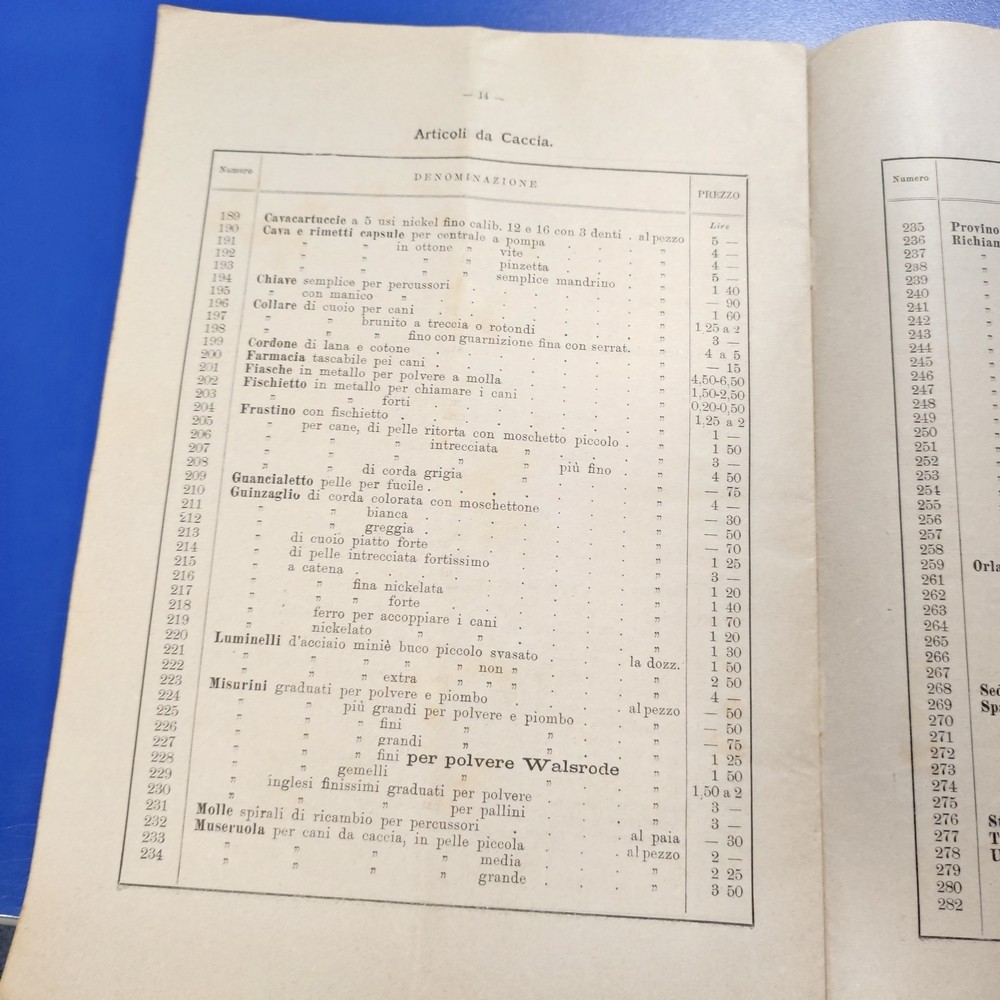 — 14 —
Articoli da Caccia.
Numero DENOMINAZIONE PREZZO
Lire
189 Cavacartuccie a 5 usi nickel fino calib. 12 e 16 con 3 denti . al pezzo 5 —
190 Cava e rimetti capsule per centrale a pompa . . . " 4 —
191 " " in ottone " vite . . . . " 4 —
192 " " " " pinzetta . . . " 5 —
193 " " " " semplice mandrino . " 1 40
194 Chiave semplice per percussori . . . . . " — 90
195 " con manico " . . . . . . " 1 60
196 Collare di cuoio per cani . . . . . . " 1,25 a 2
197 " " brunito a treccia o rotondi . . . " 3 —
198 " " " fino con guarnizione fina con serrat. " 4 a 5
199 Cordone di lana e cotone . . . . . . " — 15
200 Farmacia tascabile pei cani . . . . . . " 4,50-6,50
201 Fiasche in metallo per polvere a molla . . . . " 1,50-2,50
202 Fischietto in metallo per chiamare i cani . . . . " 0,20-0,50
203 " " forti . . . . . . " 1,25 a 2
204 Frustino con fischietto . . . . . . . " 1 —
205 " per cane, di pelle ritorta con moschetto piccolo . " 1 50
206 " " " intrecciata " . . " 3 —
207 " " " " " più fino . " 4 50
208 " " di corda grigia " . . " — 75
209 Guancialetto pelle per fucile . . . . . . " 4 —
210 Guinzaglio di corda colorata con moschettone . . . " — 30
211 " " bianca . . . . . . " — 50
212 " " greggia . . . . . . " — 70
213 " di cuoio piatto forte . . . . . " 1 25
214 " di pelle intrecciata fortissimo . . . . " 3 —
215 " a catena . . . . . . . " 1 20
216 " " fina nickelata . . . . . " 1 40
217 " " forte . . . . . . " 1 70
218 " ferro per accoppiare i cani . . . . " 1 20
219 " nickelato " " . . . . " 1 30
220 Luminelli d'acciaio miniè buco piccolo svasato . . . la dozz. 1 50
221 " " " " non " . . . " 2 50
222 " " extra " " " . . . " 4 —
223 Misurini graduati per polvere e piombo . . . . al pezzo — 50
224 " " più grandi per polvere e piombo . . " — 50
225 " " " fini " " . . " — 75
226 " " " grandi " " . . " 1 25
227 " " " fini per polvere Walsrode " 1 50
228 " " gemelli " " . . " 1,50 a 2
229 " inglesi finissimi graduati per polvere . . . " 3 —
230 " " " per pallini . . . " 3 —
231 Molle spirali di ricambio per percussori . . . . al paia — 30
232 Museruola per cani da caccia, in pelle piccola . . . al pezzo 2 —
233 " " " " media . . . " 2 25
234 " " " " grande . . . " 3 50
Numero
235 Provino
236 Richiam
237 "
238 "
239 "
240 "
241 "
242 "
243 "
244 "
245 "
246 "
247 "
248 "
249 "
250 "
251 "
252 "
253 "
254 "
255
256
257
258
259 Orla
261
262
263
264
265
266
267
268 Sed
269 Spa
270
271
272
273
274
275
276 St
277 T
278 U
279
280
282